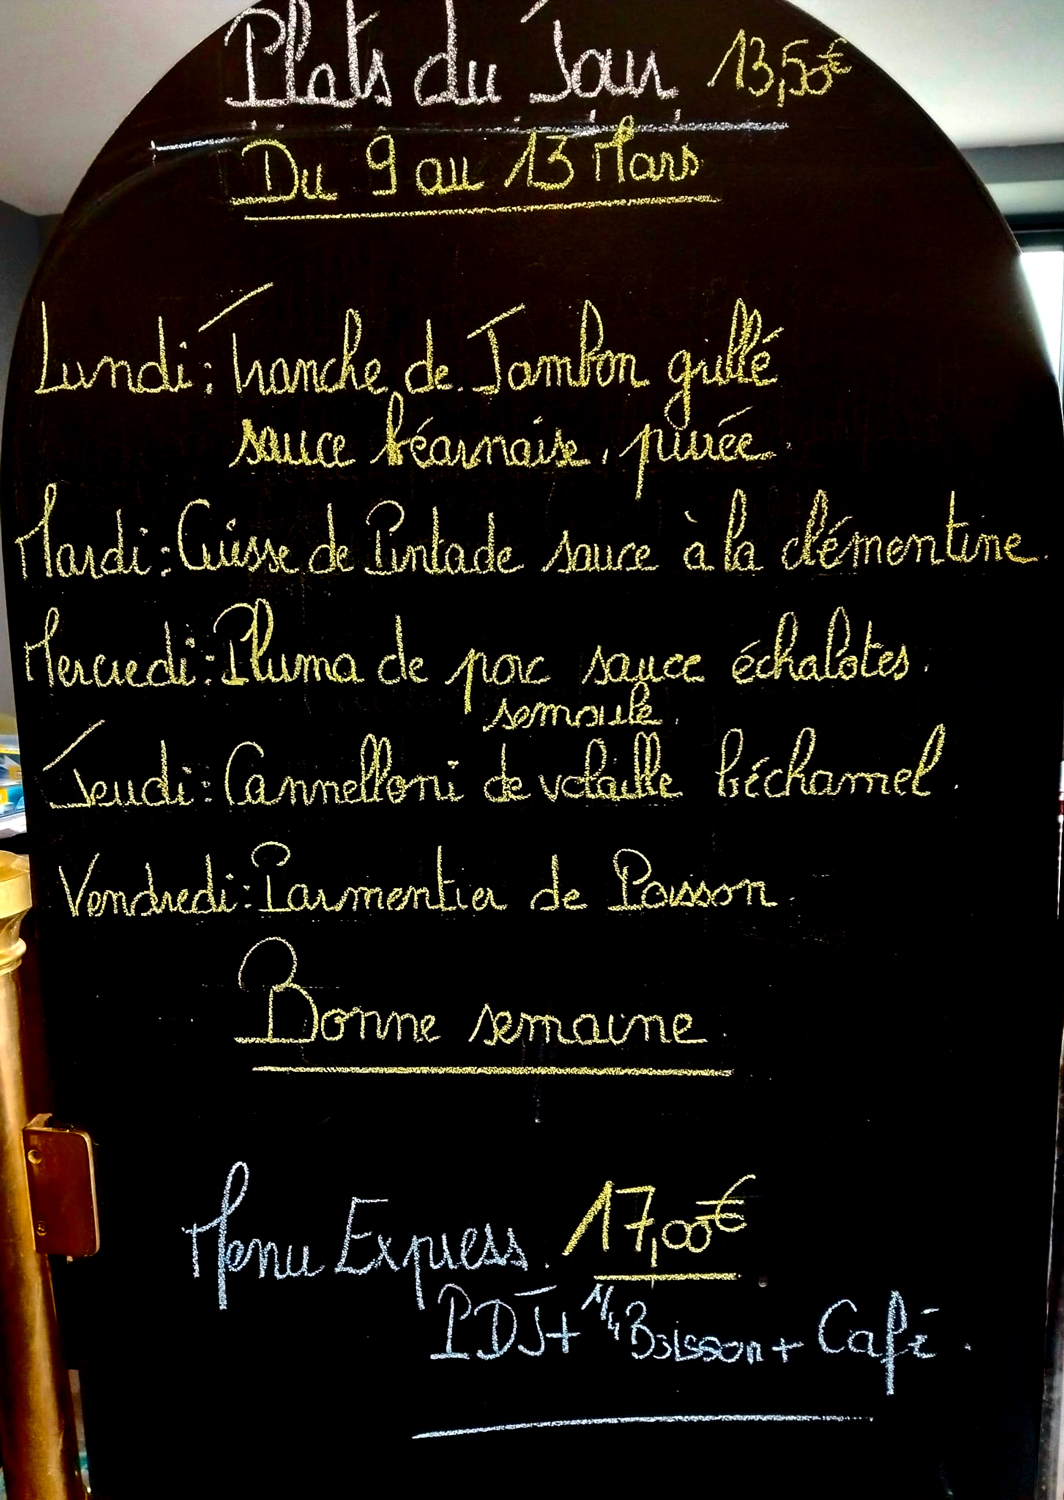 Plats du Jour 13,50€
Du 9 au 13 Mars
Lundi : Tranche de Jambon grillé
sauce béarnaise, purée.
Mardi : Cuisse de Pintade sauce à la clémentine.
Mercredi : Pluma de porc sauce échalotes.
semoule.
Jeudi : Cannelloni de volaille béchamel.
Vendredi : Parmentier de Poisson.
Bonne semaine.
Menu Express. 17,00€
PDJ + 1/4 Boisson + Café.